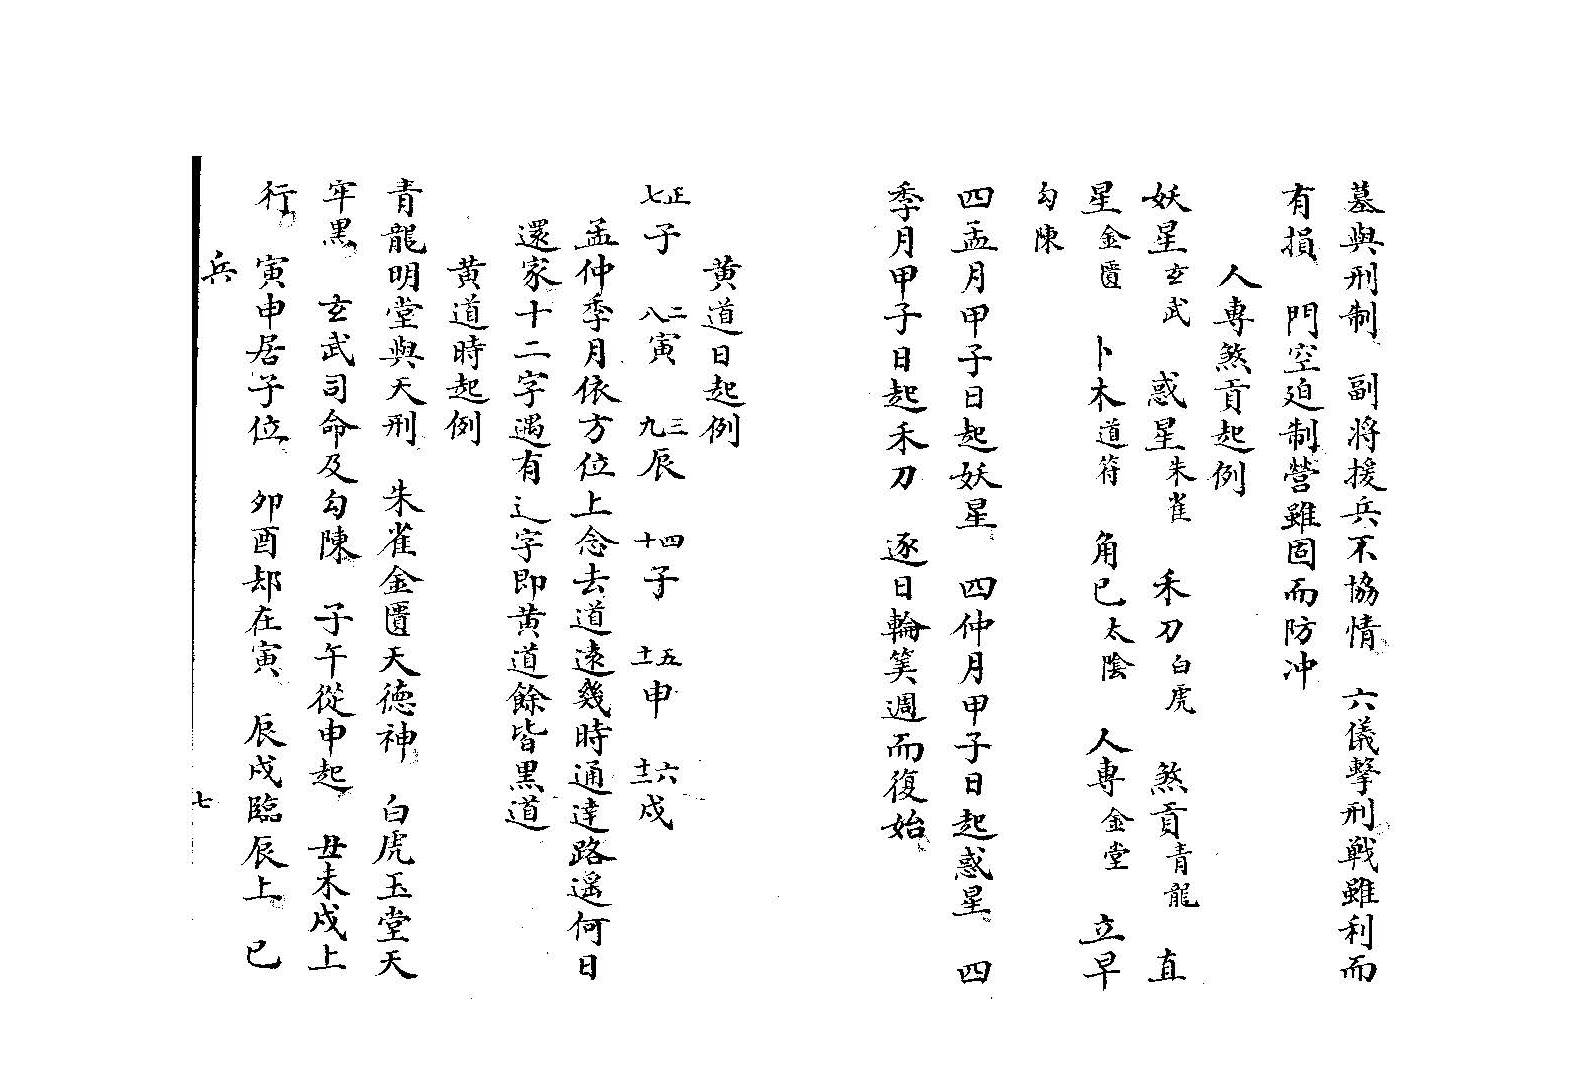 墓與刑制　副將援兵不協情　六儀擊刑戰雖利而
有損　門空迫制營雖固而防冲
人專煞貢起例
妖星玄武　惑星朱雀　禾刀白虎　煞貢青龍　直
星金匱　卜木道符　角巳太陰　人專金堂　立早
勾陳
四孟月甲子日起妖星　四仲月甲子日起惑星　四
季月甲子日起禾刀　逐日輪筭週而復始
黄道日起例
正七子　二八寅　三九辰　四十子　五十一申　六十二戍
孟仲季月依方位上念去道遠幾時通達路遥何日
還家十二字遇有辶字即黄道餘皆黒道
黄道時起例
青龍明堂與天刑　朱雀金匱天德神　白虎玉堂天
牢黒　玄武司命及勾陳　子午從申起　丑未戍上
行　寅申居子位　夘酉却在寅　辰戍臨辰上　巳
兵　七